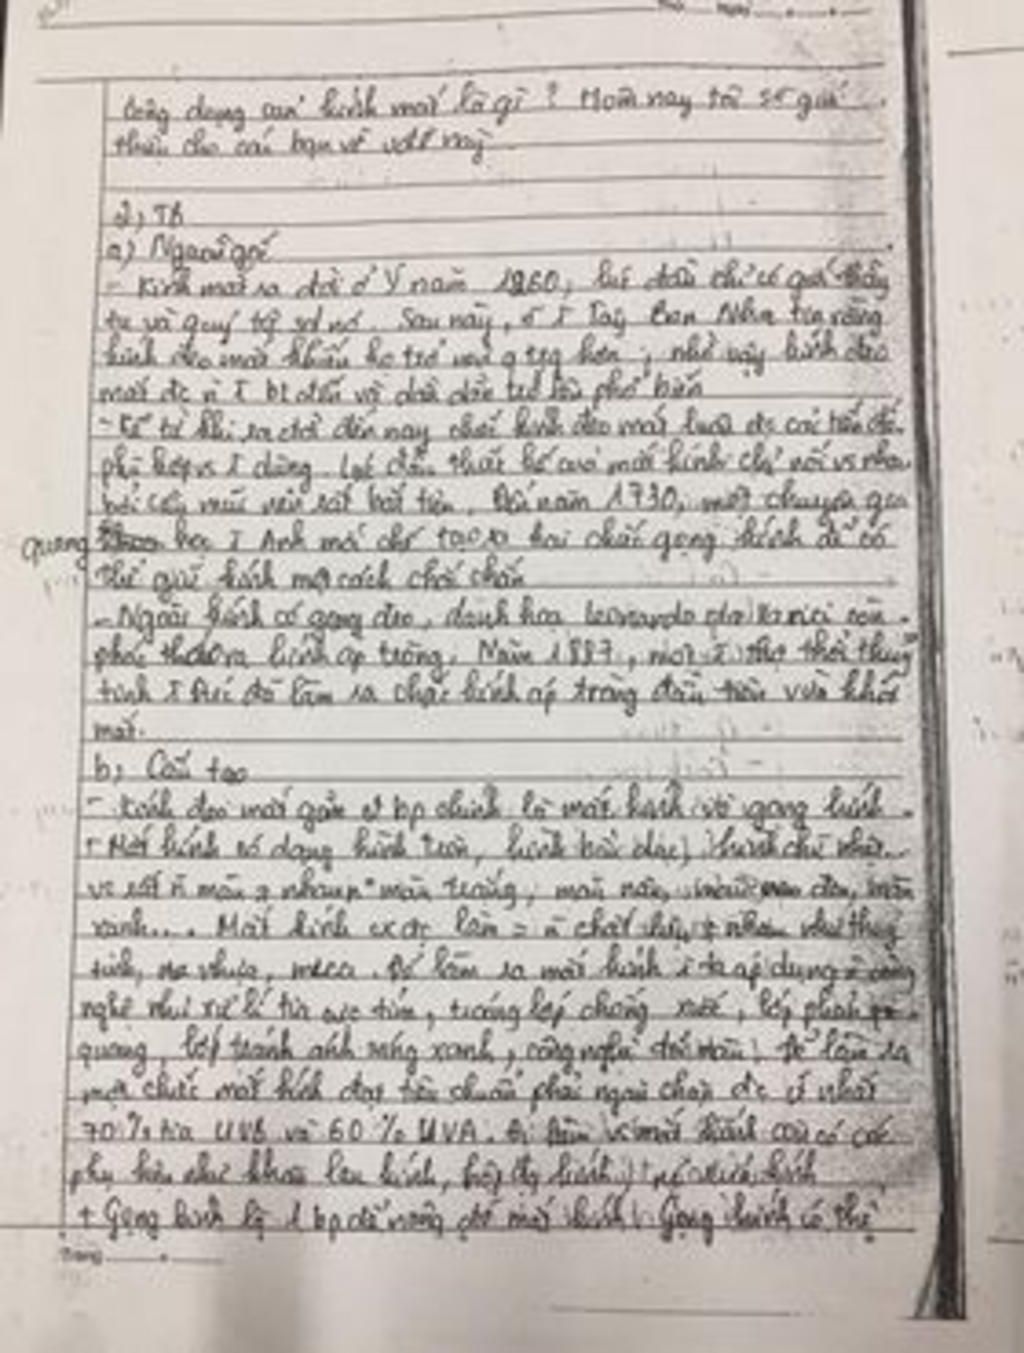 công dụng của kính mắt là gì ? Hôm nay tôi sẽ giới
thiệu cho các bạn về vật này
2, TB
a) Nguồn gốc
- Kính mắt ra đời ở Ý năm 1260, lúc đầu chỉ có giới thầy
tu và quý tộc sd nó. Sau này, Tây Ban Nha tin rằng
kính đeo mắt khiến họ trở hơn , nhờ vậy kính đeo
mắt đc biết đến và dần dần trở phổ biến
- Kể từ khi ra đời đến nay chiếc kính đeo mắt luôn đc cải tiến để
phù hợp vs dùng. Lúc đầu thiết kế của mắt kính chỉ nối vs nhau
bởi cầu mũi nên rất bất tiện. Đến năm 1730, một chuyên gia
quang học Anh mới chế tạo ra hai chiếc gọng kính để có
thể giữ kính một cách chắc chắn
- Ngoài kính có gọng đeo, danh họa Leonardo da Vinci còn
phác thảo ra kính áp tròng. Năm 1887, một thợ thổi thuỷ
tinh Đức đã làm ra chiếc kính áp tròng đầu tiên vừa khớp
mắt.
b, Cấu tạo
- Kính đeo mắt gồm 2 bp chính là mắt kính và gọng kính.
+ Mắt kính có dạng hình tròn, hình bầu dục, hình chữ nhật..
và rất màu nhau: màu trắng, màu nâu, màu đen, màu
xanh.... Mắt kính làm = chất liệu nhau như thuỷ
tinh, nhựa, mica. Để làm ra mắt kính ta áp dụng công
nghệ như xử lí tia cực tím, tráng lớp chống xước, lớp phản
quang, lớp tránh ánh sáng xanh, công nghệ đổi màu. Để làm ra
một chiếc mắt kính đạt tiêu chuẩn phải ngăn chặn đc ít nhất
70% tia UVB và 60% UVA. Đi kèm vs mắt kính còn có các
phụ kiện như khăn lau kính, hộp kính, kính
+ Gọng kính là 1 bp để nâng đỡ mắt kính. Gọng kính có thể
Trang